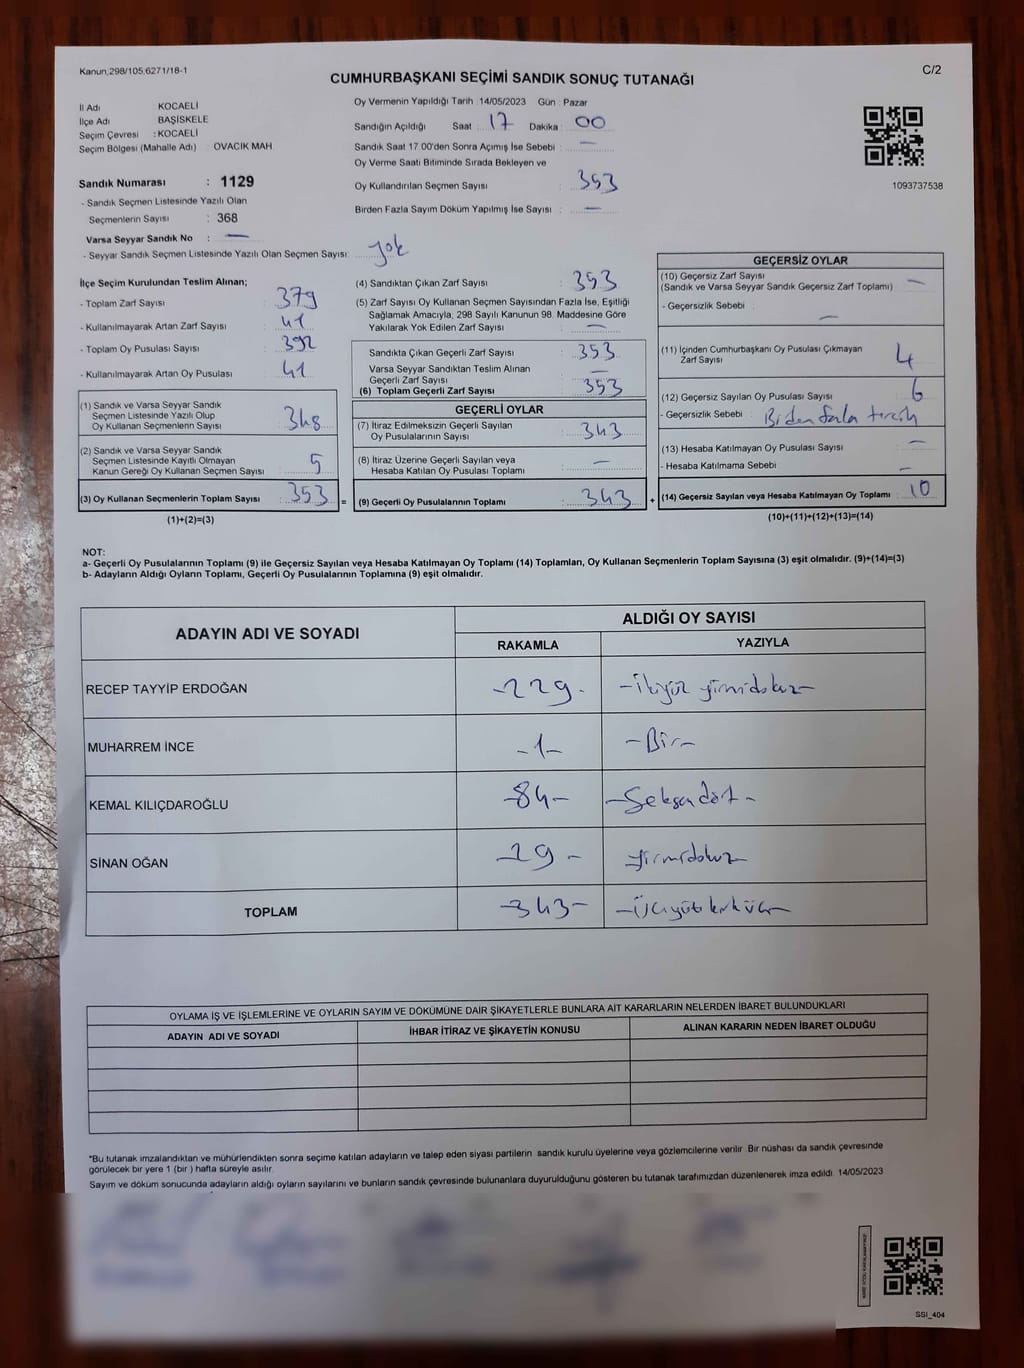 Kanun:298/105,6271/18-1
C/2
CUMHURBAŞKANI SEÇİMİ SANDIK SONUÇ TUTANAĞI
İl Adı KOCAELİ
İlçe Adı BAŞİSKELE
Seçim Çevresi : KOCAELİ
Seçim Bölgesi (Mahalle Adı) : OVACIK MAH
Sandık Numarası : 1129
- Sandık Seçmen Listesinde Yazılı Olan
Seçmenlerin Sayısı : 368
Varsa Seyyar Sandık No : —
- Seyyar Sandık Seçmen Listesinde Yazılı Olan Seçmen Sayısı: yok
Oy Vermenin Yapıldığı Tarih :14/05/2023 Gün : Pazar
Sandığın Açıldığı Saat : 17 Dakika : 00
Sandık Saat 17.00'den Sonra Açımış İse Sebebi : —
Oy Verme Saati Bitiminde Sırada Bekleyen ve
Oy Kullandırılan Seçmen Sayısı : 353
Birden Fazla Sayım Döküm Yapılmış İse Sayısı : —
1093737538
İlçe Seçim Kurulundan Teslim Alınan;
- Toplam Zarf Sayısı : 379
- Kullanılmayarak Artan Zarf Sayısı : 41
- Toplam Oy Pusulası Sayısı : 392
- Kullanılmayarak Artan Oy Pusulası : 41
(1) Sandık ve Varsa Seyyar Sandık
Seçmen Listesinde Yazılı Olup
Oy Kullanan Seçmenlerin Sayısı : 348
(2) Sandık ve Varsa Seyyar Sandık
Seçmen Listesinde Kayıtlı Olmayan
Kanun Gereği Oy Kullanan Seçmen Sayısı : 5
(3) Oy Kullanan Seçmenlerin Toplam Sayısı : 353 =
(1)+(2)=(3)
(4) Sandıktan Çıkan Zarf Sayısı : 353
(5) Zarf Sayısı Oy Kullanan Seçmen Sayısından Fazla İse, Eşitliği
Sağlamak Amacıyla, 298 Sayılı Kanunun 98. Maddesine Göre
Yakılarak Yok Edilen Zarf Sayısı : —
Sandıkta Çıkan Geçerli Zarf Sayısı : 353
Varsa Seyyar Sandıktan Teslim Alınan
Geçerli Zarf Sayısı : —
(6) Toplam Geçerli Zarf Sayısı : 353
GEÇERLİ OYLAR
(7) İtiraz Edilmeksizin Geçerli Sayılan
Oy Pusulalarının Sayısı : 343
(8) İtiraz Üzerine Geçerli Sayılan veya
Hesaba Katılan Oy Pusulası Toplamı : —
(9) Geçerli Oy Pusulalarının Toplamı : 343 +
GEÇERSİZ OYLAR
(10) Geçersiz Zarf Sayısı
(Sandık ve Varsa Seyyar Sandık Geçersiz Zarf Toplamı) : —
- Geçersizlik Sebebi : —
(11) İçinden Cumhurbaşkanı Oy Pusulası Çıkmayan
Zarf Sayısı 4
(12) Geçersiz Sayılan Oy Pusulası Sayısı : 6
- Geçersizlik Sebebi : Birden fazla tercih
(13) Hesaba Katılmayan Oy Pusulası Sayısı : —
- Hesaba Katılmama Sebebi : —
(14) Geçersiz Sayılan veya Hesaba Katılmayan Oy Toplamı : 10
(10)+(11)+(12)+(13)=(14)
NOT:
a- Geçerli Oy Pusulalarının Toplamı (9) ile Geçersiz Sayılan veya Hesaba Katılmayan Oy Toplamı (14) Toplamları, Oy Kullanan Seçmenlerin Toplam Sayısına (3) eşit olmalıdır. (9)+(14)=(3)
b- Adayların Aldığı Oyların Toplamı, Geçerli Oy Pusulalarının Toplamına (9) eşit olmalıdır.
ADAYIN ADI VE SOYADI
ALDIĞI OY SAYISI
RAKAMLA YAZIYLA
RECEP TAYYİP ERDOĞAN -229- -İkiyüz yirmidokuz-
MUHARREM İNCE -1- -Bir-
KEMAL KILIÇDAROĞLU -84- -Seksendört-
SİNAN OĞAN -29- yirmidokuz-
TOPLAM -343- -Üçyüzkırküç-
OYLAMA İŞ VE İŞLEMLERİNE VE OYLARIN SAYIM VE DÖKÜMÜNE DAİR ŞİKAYETLERLE BUNLARA AİT KARARLARIN NELERDEN İBARET BULUNDUKLARI
ADAYIN ADI VE SOYADI İHBAR İTİRAZ VE ŞİKAYETİN KONUSU ALINAN KARARIN NEDEN İBARET OLDUĞU
*Bu tutanak imzalandıktan ve mühürlendikten sonra seçime katılan adayların ve talep eden siyasi partilerin sandık kurulu üyelerine veya gözlemcilerine verilir. Bir nüshası da sandık çevresinde
görülecek bir yere 1 (bir ) hafta süreyle asılır.
Sayım ve döküm sonucunda adayların aldığı oyların sayılarını ve bunların sandık çevresinde bulunanlara duyurulduğunu gösteren bu tutanak tarafımızdan düzenlenerek imza edildi. 14/05/2023
SSI_404